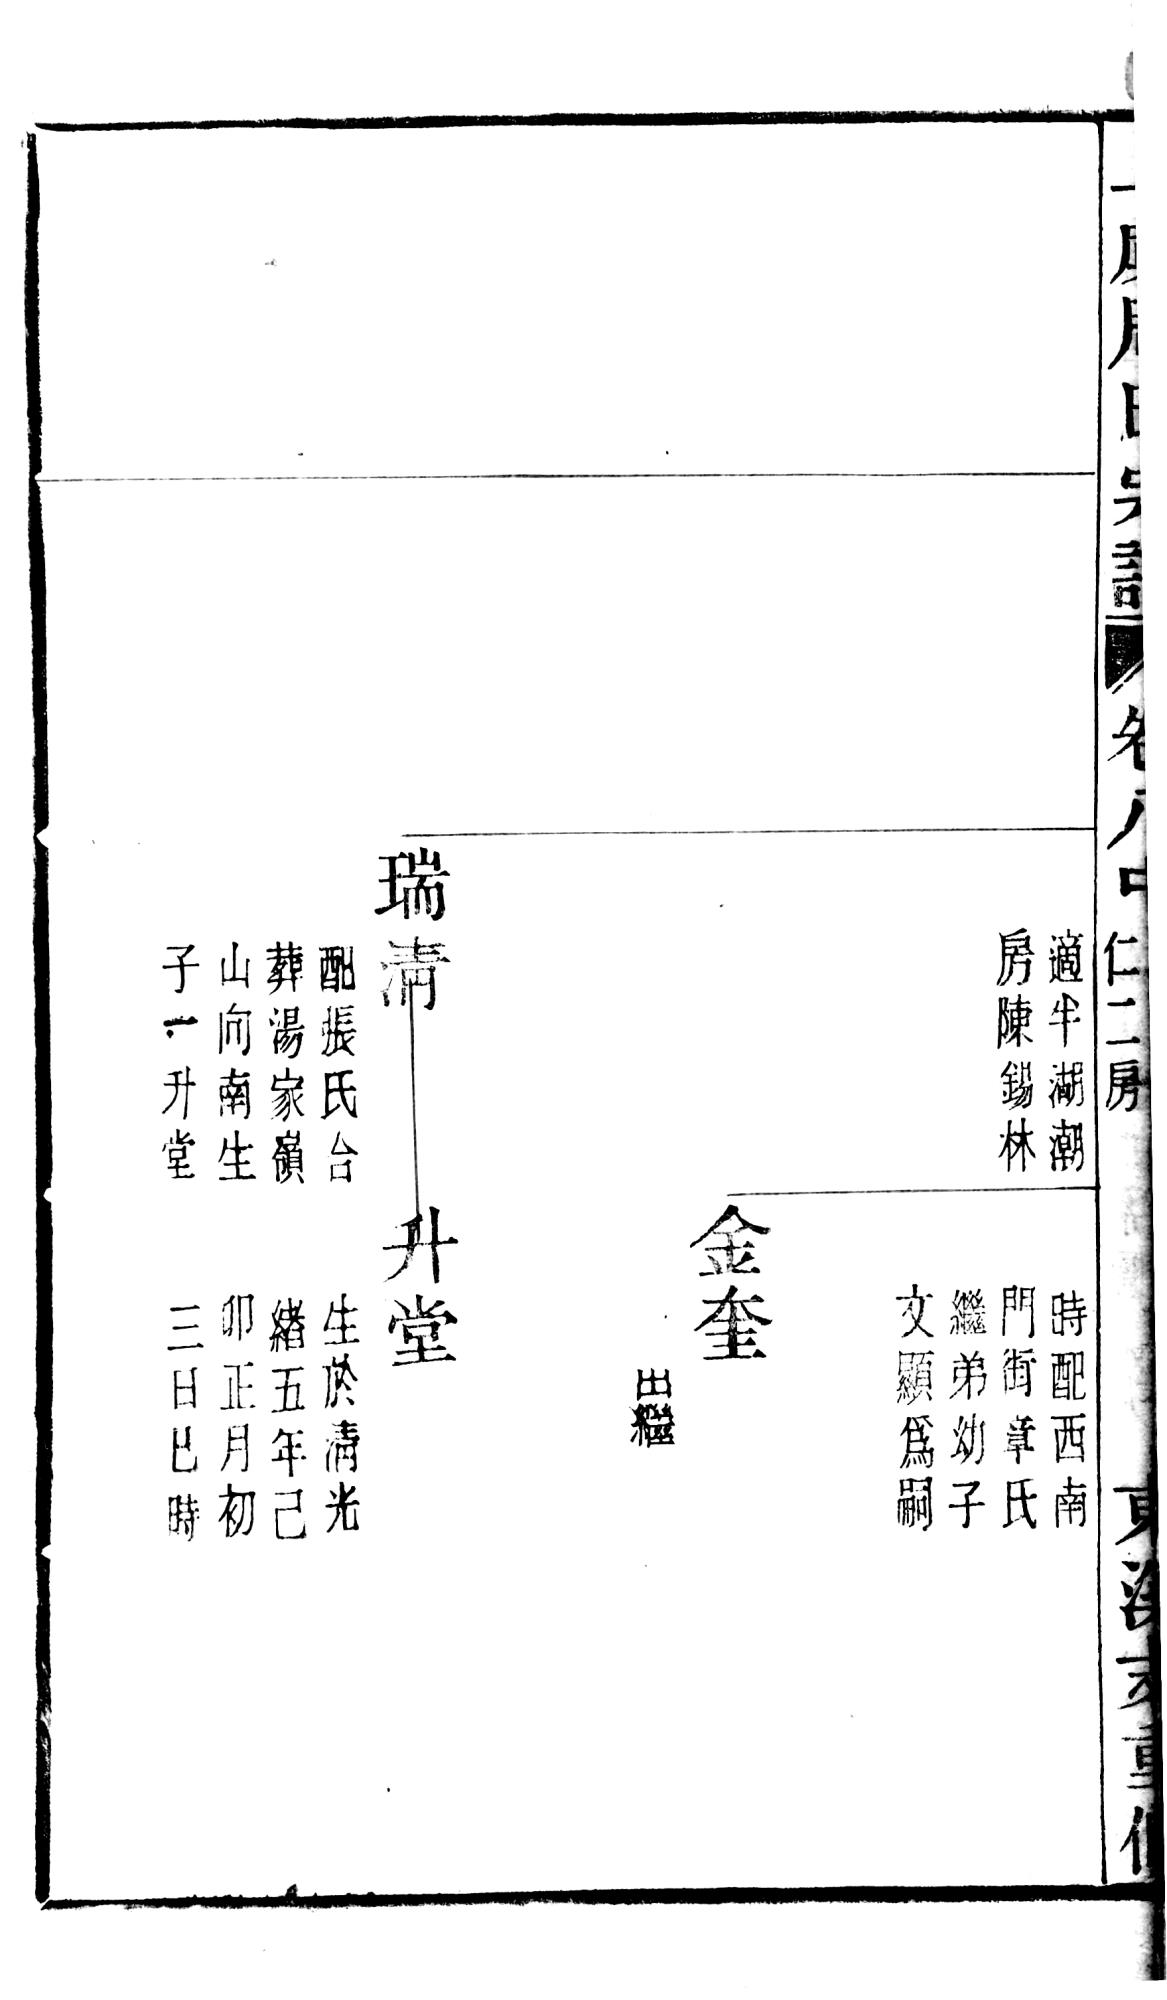 卷八中
仁二房
適半湖潮
房陳錫林
時配西南
門街章氏
繼弟幼子
文顯爲嗣
金奎
出繼
瑞清
配張氏合
葬湯家嶺
山向南生
子一升堂
升堂
生於清光
緒五年己
卯正月初
三日巳時